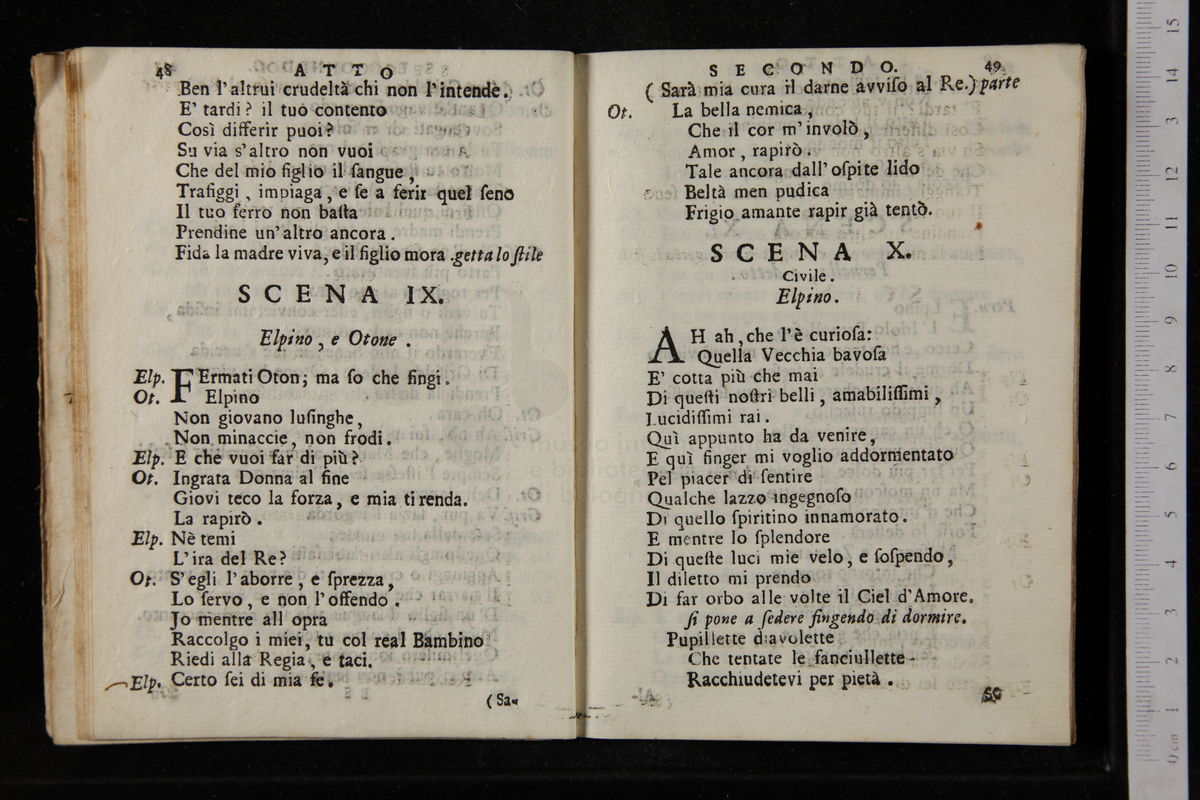 48 ATTO
Ben l'altrui crudeltà chi non l'intende.
E' tardi? il tuo contento
Così differir puoi?
Su via s'altro non vuoi
Che del mio figlio il ſangue,
Trafiggi, impiaga, e ſe a ferir quel ſeno
Il tuo ferro non baſta
Prendine un'altro ancora.
Fida la madre viva, e il figlio mora. getta lo ſtile
SCENA IX.
Elpino, e Otone.
Elp. FErmati Oton; ma ſo che fingi.
Ot. Elpino
Non giovano luſinghe,
Non minaccie, non frodi.
Elp. E che vuoi far di più?
Ot. Ingrata Donna al fine
Giovi teco la forza, e mia ti renda.
La rapirò.
Elp. Nè temi
L'ira del Re?
Ot. S'egli l'aborre, e ſprezza,
Lo ſervo, e non l'offendo.
Jo mentre all opra
Raccolgo i miei, tu col real Bambino
Riedi alla Regia, e taci.
Elp. Certo ſei di mia fe.
(Sa-
SECONDO. 49
(Sarà mia cura il darne avviſo al Re.) parte
Ot. La bella nemica,
Che il cor m'involò,
Amor, rapirò.
Tale ancora dall'oſpite lido
Beltà men pudica
Frigio amante rapir già tentò.
SCENA X.
Civile.
Elpino.
AH ah, che l'è curioſa:
Quella Vecchia bavoſa
E' cotta più che mai
Di queſti noſtri belli, amabiliſſimi,
Lucidiſſimi rai.
Quì appunto ha da venire,
E quì finger mi voglio addormentato
Pel piacer di ſentire
Qualche lazzo ingegnoſo
Di quello ſpiritino innamorato.
E mentre lo ſplendore
Di queſte luci mie velo, e ſoſpendo,
Il diletto mi prendo
Di far orbo alle volte il Ciel d'Amore.
ſi pone a ſedere fingendo di dormire.
Pupillette diavolette
Che tentate le fanciullette
Racchiudetevi per pietà.